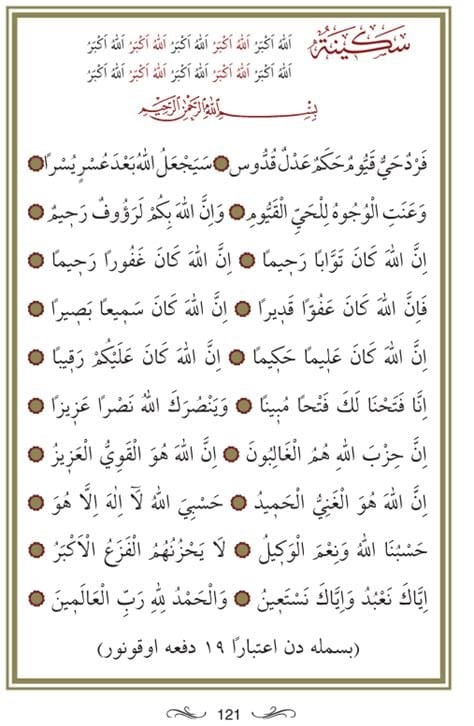 سَكِينَةٌ
اَللّٰهُ اَكْبَرُ اَللّٰهُ اَكْبَرُ اَللّٰهُ اَكْبَرُ اَللّٰهُ اَكْبَرُ اَللّٰهُ اَكْبَرُ
اَللّٰهُ اَكْبَرُ اَللّٰهُ اَكْبَرُ اَللّٰهُ اَكْبَرُ اَللّٰهُ اَكْبَرُ اَللّٰهُ اَكْبَرُ
بِسْمِ اللّٰهِ الرَّحْمٰنِ الرَّحِيمِ
فَرْدٌ حَيٌّ قَيُّومٌ حَكَمٌ عَدْلٌ قُدُّوسٌ ۞ سَيَجْعَلُ اللّٰهُ بَعْدَ عُسْرٍ يُسْرًا ۞
وَعَنَتِ الْوُجُوهُ لِلْحَيِّ الْقَيُّومِ ۞ وَاِنَّ اللّٰهَ بِكُمْ لَرَؤُوفٌ رَحِيمٌ ۞
اِنَّ اللّٰهَ كَانَ تَوَّابًا رَحِيمًا ۞ اِنَّ اللّٰهَ كَانَ غَفُورًا رَحِيمًا ۞
فَاِنَّ اللّٰهَ كَانَ عَفُوًّا قَدِيرًا ۞ اِنَّ اللّٰهَ كَانَ سَمِيعًا بَصِيرًا ۞
اِنَّ اللّٰهَ كَانَ عَلِيمًا حَكِيمًا ۞ اِنَّ اللّٰهَ كَانَ عَلَيْكُمْ رَقِيبًا ۞
اِنَّا فَتَحْنَا لَكَ فَتْحًا مُبِينًا ۞ وَيَنْصُرَكَ اللّٰهُ نَصْرًا عَزِيزًا ۞
اِنَّ حِزْبَ اللّٰهِ هُمُ الْغَالِبُونَ ۞ اِنَّ اللّٰهَ هُوَ الْقَوِيُّ الْعَزِيزُ ۞
اِنَّ اللّٰهَ هُوَ الْغَنِيُّ الْحَمِيدُ ۞ حَسْبِيَ اللّٰهُ لَٓا اِلٰهَ اِلَّا هُوَ ۞
حَسْبُنَا اللّٰهُ وَنِعْمَ الْوَكِيلُ ۞ لَا يَحْزُنُهُمُ الْفَزَعُ الْاَكْبَرُ ۞
اِيَّاكَ نَعْبُدُ وَاِيَّاكَ نَسْتَعِينُ ۞ وَالْحَمْدُ لِلّٰهِ رَبِّ الْعَالَمِينَ ۞
(بسمله دن اعتبارًا ١٩ دفعه اوقونور)
121